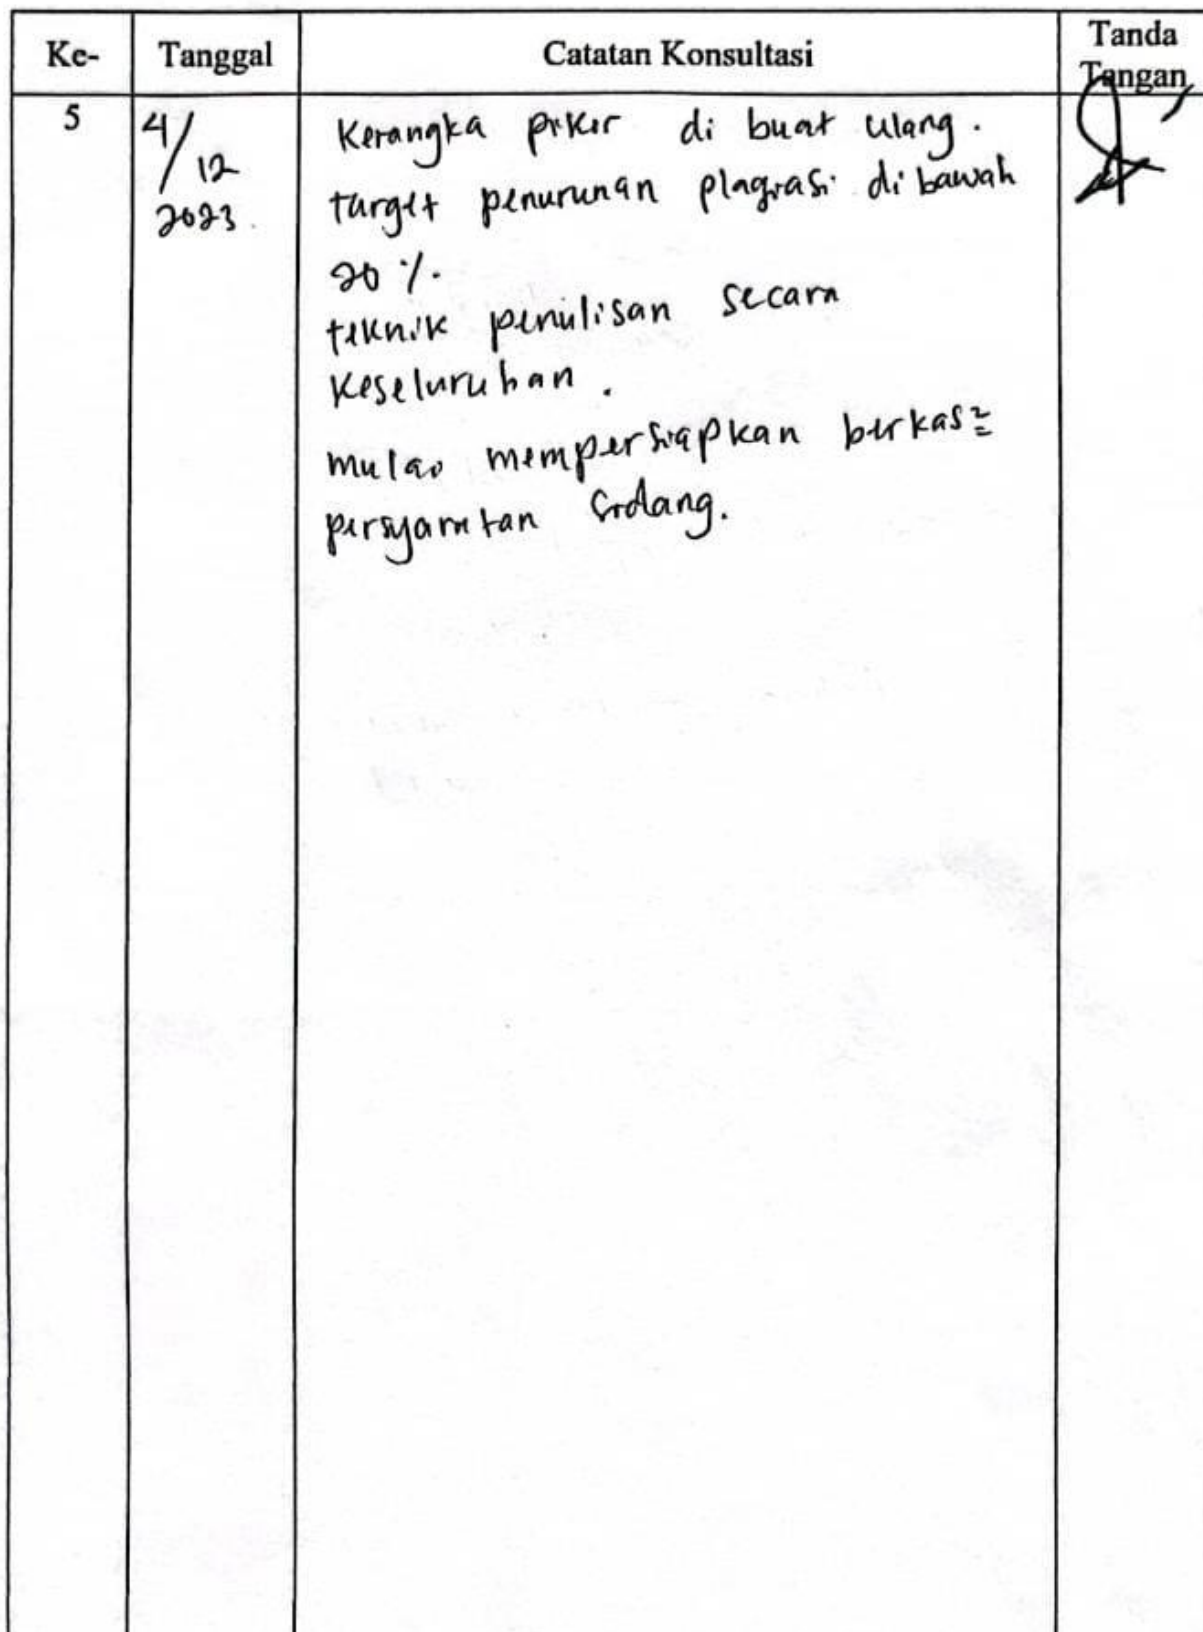 Ke- Tanggal Catatan Konsultasi Tanda Tangan
5
4/12
2023.
Kerangka pikir di buat ulang.
target penurunan plagiasi di bawah
20 %.
teknik penulisan secara
keseluruhan.
mulai mempersiapkan berkas²
persyaratan sidang.